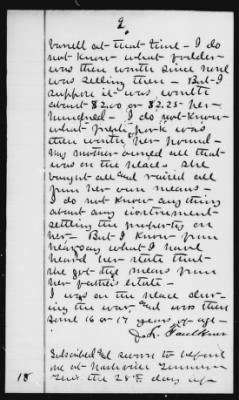 2.
barrell at that time - I do
not know what fodder
was then worth since none
was selling then - But I
suppose it was worth
about $2.00 or $2.25 per
hundred - I do not know
what pork was
then worth per pound -
My mother owned all that
was on the place. She
bought all and raised all
from her own means -
I do not know any thing
about any instrument
settling the property on
her - But I know from
hearsay what I have
heard her state that
she got the means from
her father's estate -
I was on the place dur-
ing the war, and was then
some 16 or 17 years of age -
J. Faulkner
Subscribed and sworn to before
me at Nashville Tennes-
see the 28th day of
18